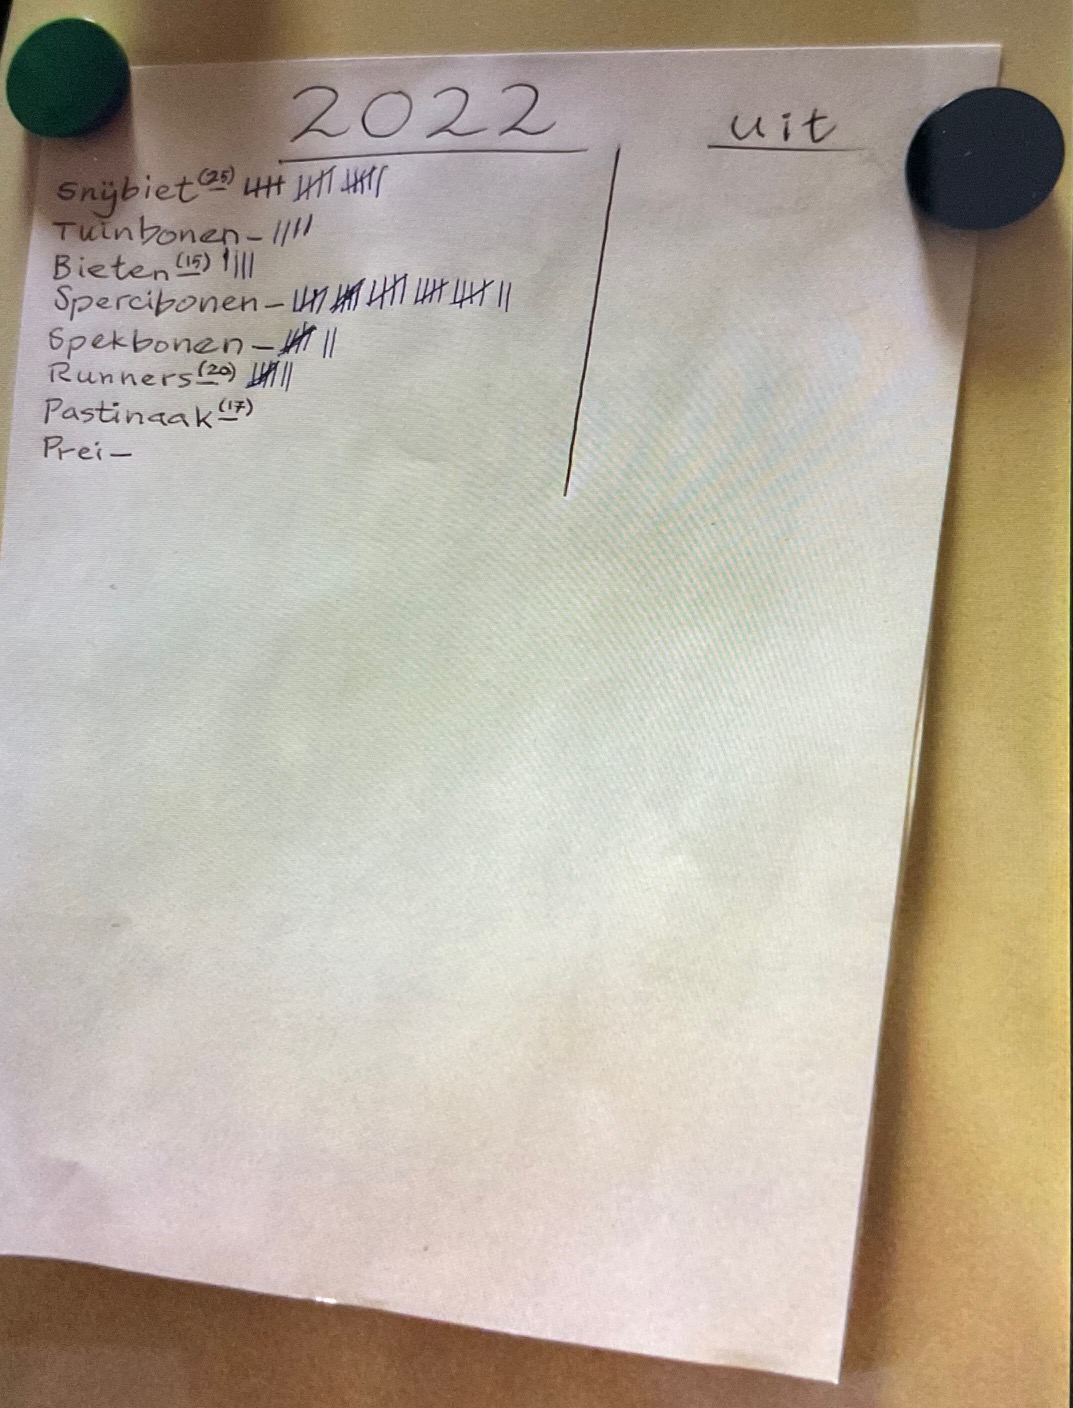 2022
uit
Snijbiet (25) 𝍸 𝍸 𝍸 |
Tuinbonen - ||||
Bieten (15) ||||
Spercibonen - 𝍸 𝍸 𝍸 𝍸 𝍸 ||
Spekbonen - 𝍸 ||
Runners (20) 𝍸 ||
Pastinaak (17)
Prei -